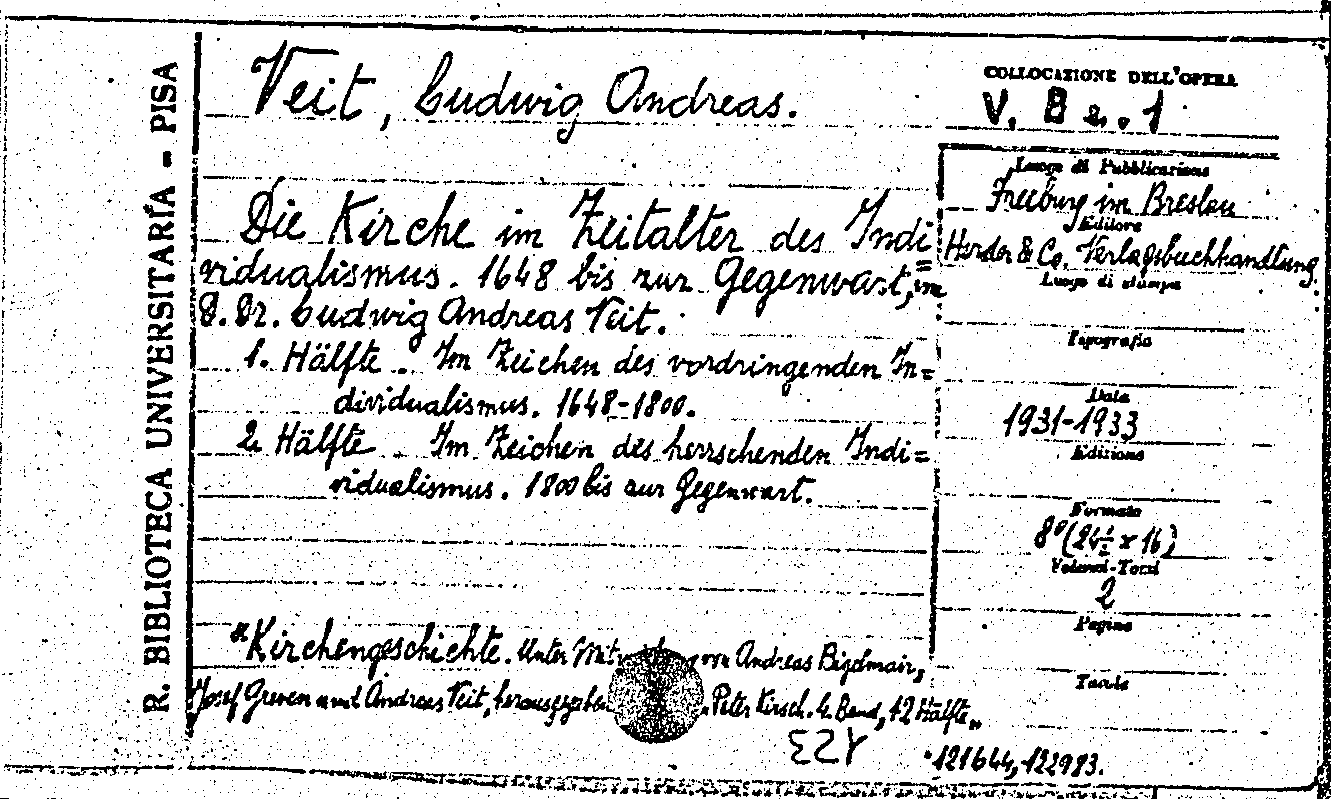 R. BIBLIOTECA UNIVERSITARIA - PISA
Veit, Ludwig Andreas.
COLLOCAZIONE DELL'OPERA
V. B e. 1
Die Kirche im Zeitalter des Indi=
vidualismus. 1648 bis zur Gegenwart,
D. Dr. Ludwig Andreas Veit.
1. Hälfte. Im Zeichen des vordringenden In=
dividualismus. 1648-1800.
2. Hälfte. Im Zeichen des herrschenden Indi=
vidualismus. 1800 bis zur Gegenwart.
"Kirchengeschichte. Unter von Andreas Bigelmair,
Josef Greven und Andreas Veit, Peter Kirsch. 4. Band, 12 Hälfte"
Luogo di Pubblicazione
Freiburg im Breslau
Editore
Herder & Co. Verlagsbuchhandlung
Luogo di stampa
Tipografia
Data
1931-1933
Edizione
Formato
8° (24½ x 16)
Volumi-Tomi
2
Pagine
Tavole
121644, 122983.